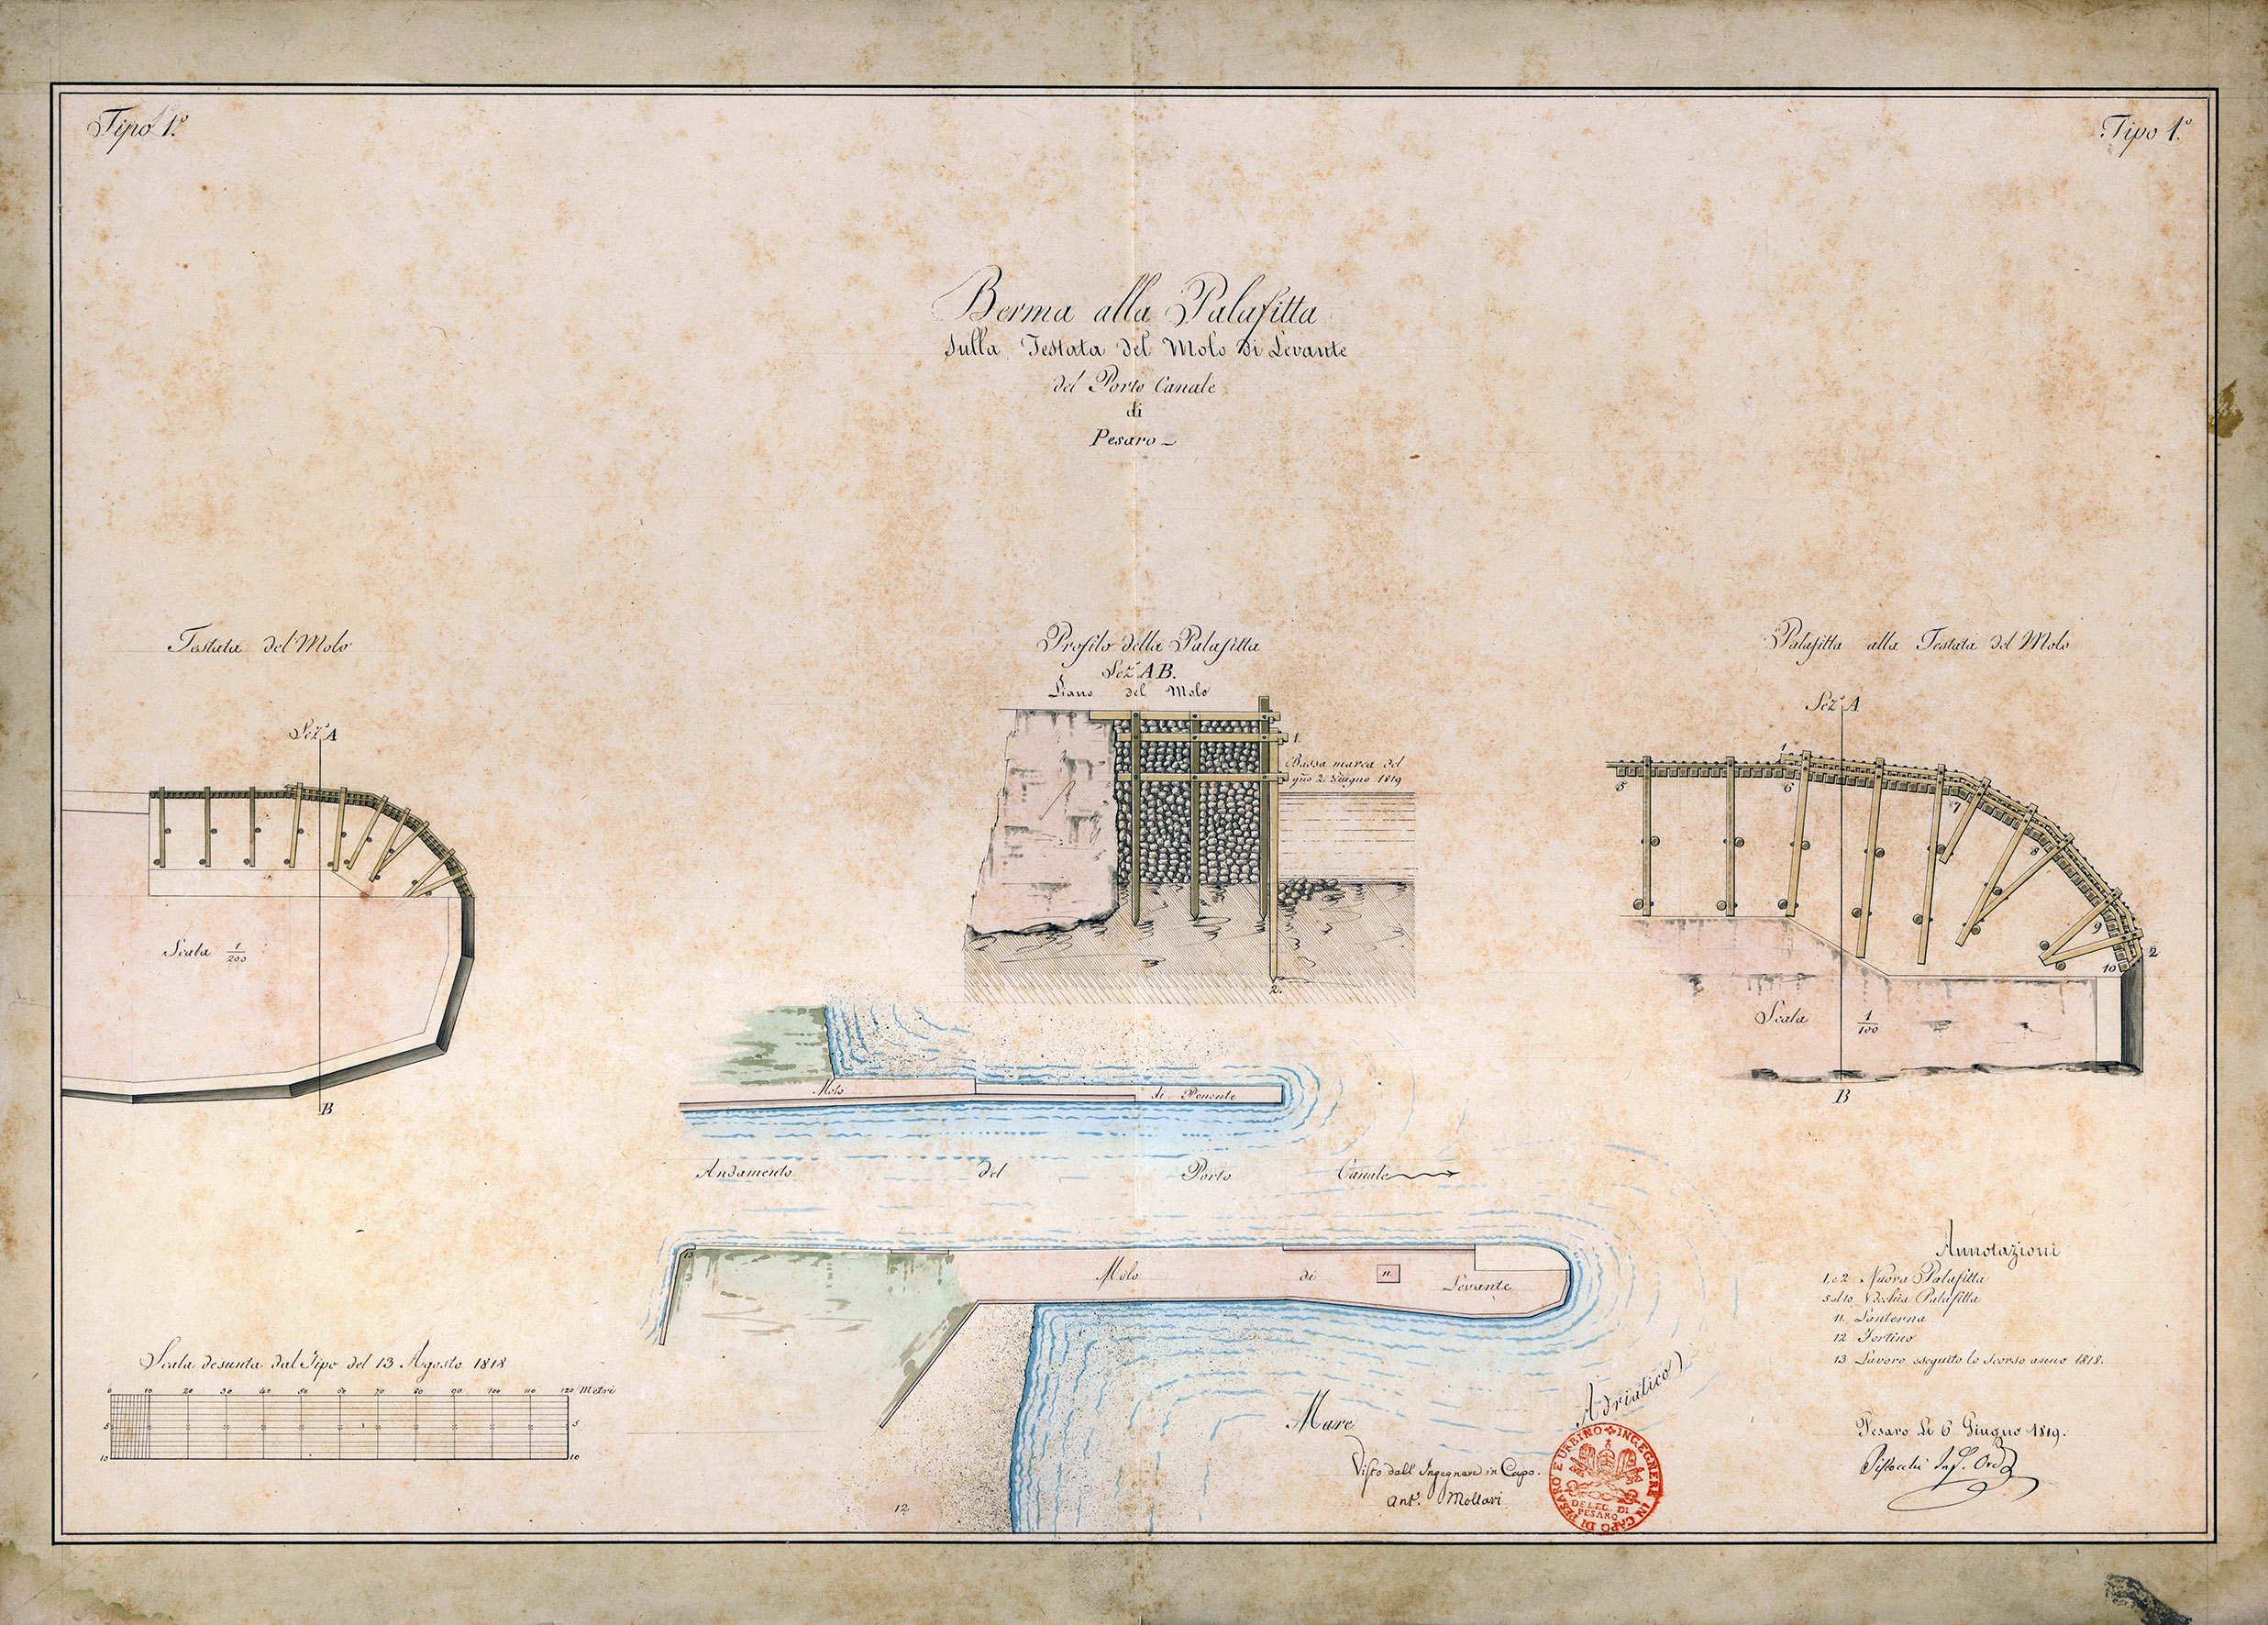 Tipo 1.º
Tipo 1.º
Berma alla Palafitta
sulla Testata del Molo di Levante
del Porto Canale
di
Pesaro
Testata del Molo
Sez.ª A
Scala 1/200
B
Profilo della Palafitta
Sez.ª AB.
Piano del Molo
1.
Bassa marea del
gno 2. Giugno 1819
2.
Palafitta alla Testata del Molo
Sez.ª A
1
5
6
7
8
9
2
10
Scala 1/100
B
Molo di Ponente
Andamento del Porto Canale
13
Molo di Levante
11.
Mare Adriatico
12
Scala desunta dal Tipo del 13 Agosto 1818
0 10 20 30 40 50 60 70 80 90 100 110 120 Metri
5 5
10 10
Annotazioni
1. e 2 Nuova Palafitta
5 al 10. Vecchia Palafitta
11 Lanterna
12 Fortino
13 Lavoro eseguito lo scorso anno 1818.
Pesaro Li 6 Giugno 1819.
Visto dall' Ingegnere in Capo.
Ant.º
INGEGNERE IN CAPO DI PESARO E URBINO
DELEG. DI
PESARO